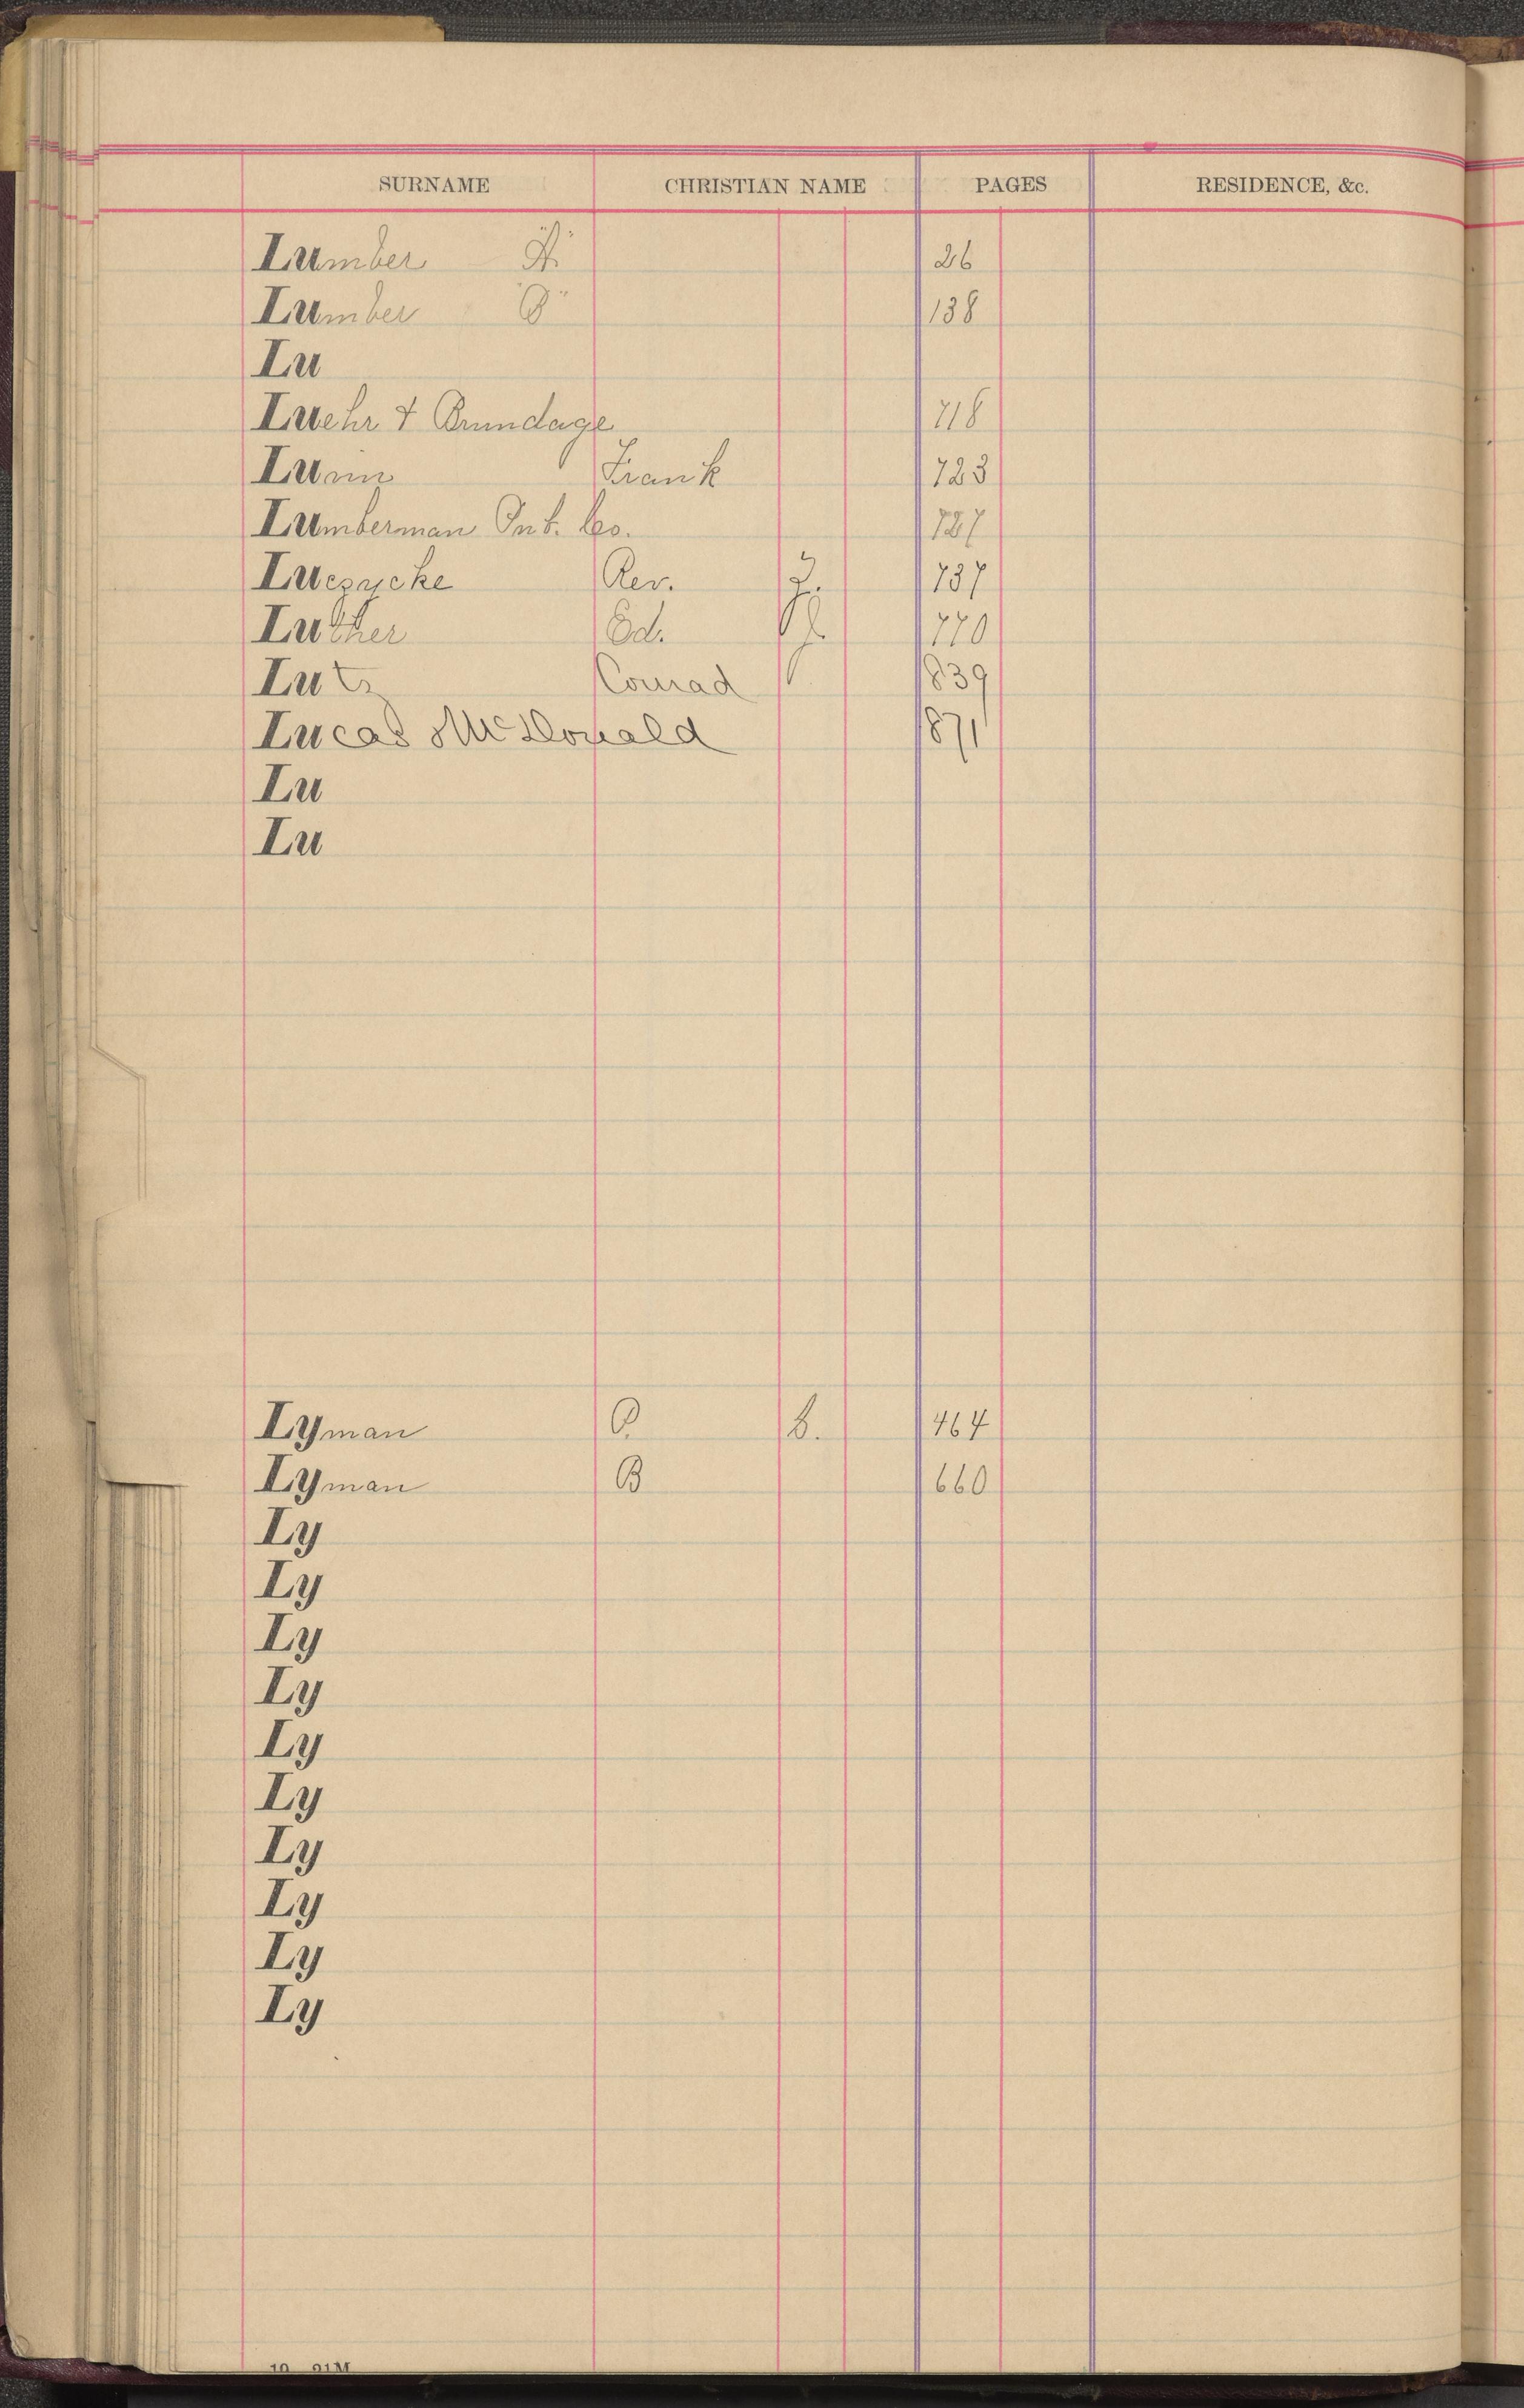 SURNAME CHRISTIAN NAME PAGES RESIDENCE, &c.
Lumber "A" 26
Lumber "B" 138
Lu
Luehr & Brundage 718
Lunn Frank 723
Lumberman Co. 727
Rev. J. 737
Luther Ed. J. 770
Lutz Conrad 839
Lucas McDonald 871
Lu
Lu
Lyman P. C. 464
Lyman B 660
Ly
Ly
Ly
Ly
Ly
Ly
Ly
Ly
Ly
Ly